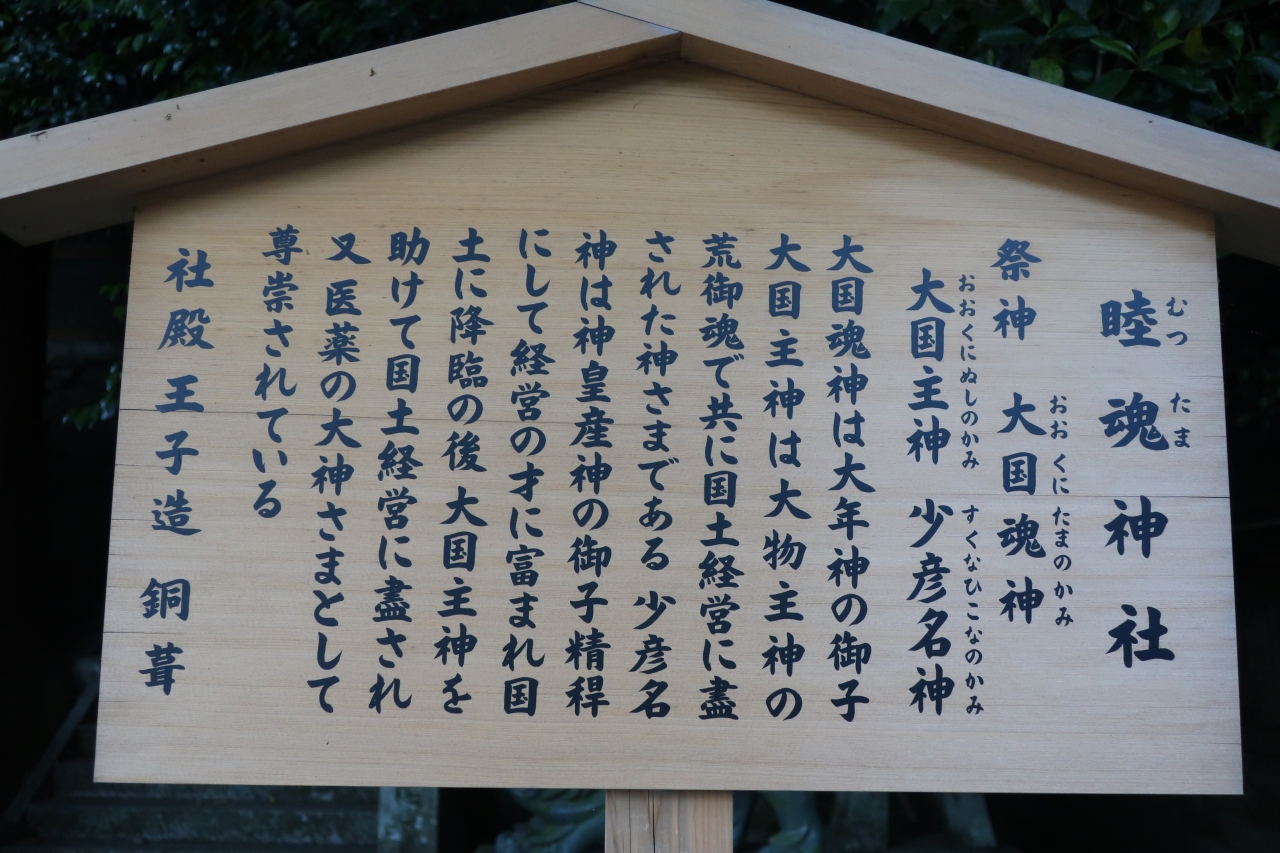 睦魂神社
むつ たま
祭神 大国魂神
おおくにたまのかみ
大国主神 少彦名神
おおくにぬしのかみ すくなひこなのかみ
大国魂神は大年神の御子
大国主神は大物主神の
荒御魂で共に国土経営に盡
された神さまである 少彦名
神は神皇産神の御子精稈
にして経営の才に富まれ国
土に降臨の後 大国主神を
助けて国土経営に盡され
又 医薬の大神さまとして
尊崇されている
社殿 王子造 銅葺